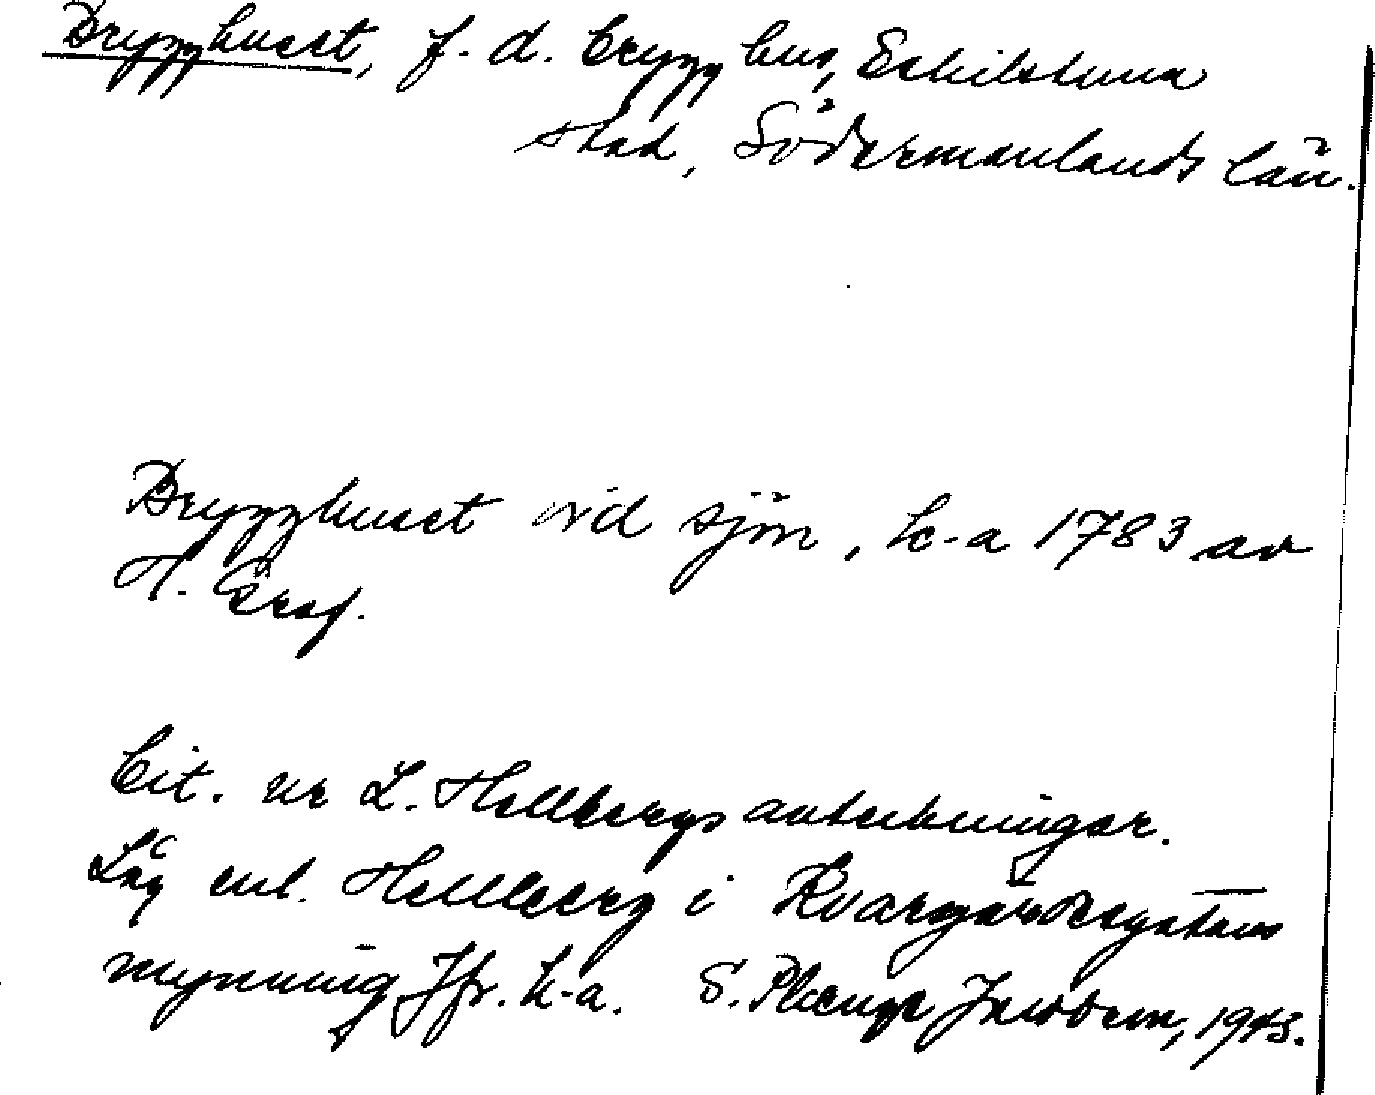 Brygghuset, f. d. brygghus, Eskilstuna
stad, Södermanlands län.
Brygghuset vid sjön, k-a 1783 av
H. Gråf.
Cit. ur L. Hellbergs anteckningar.
Låg enl. Hellberg i Kvarngärdesgatans
mynning Jfr. k-a. S. 1943.